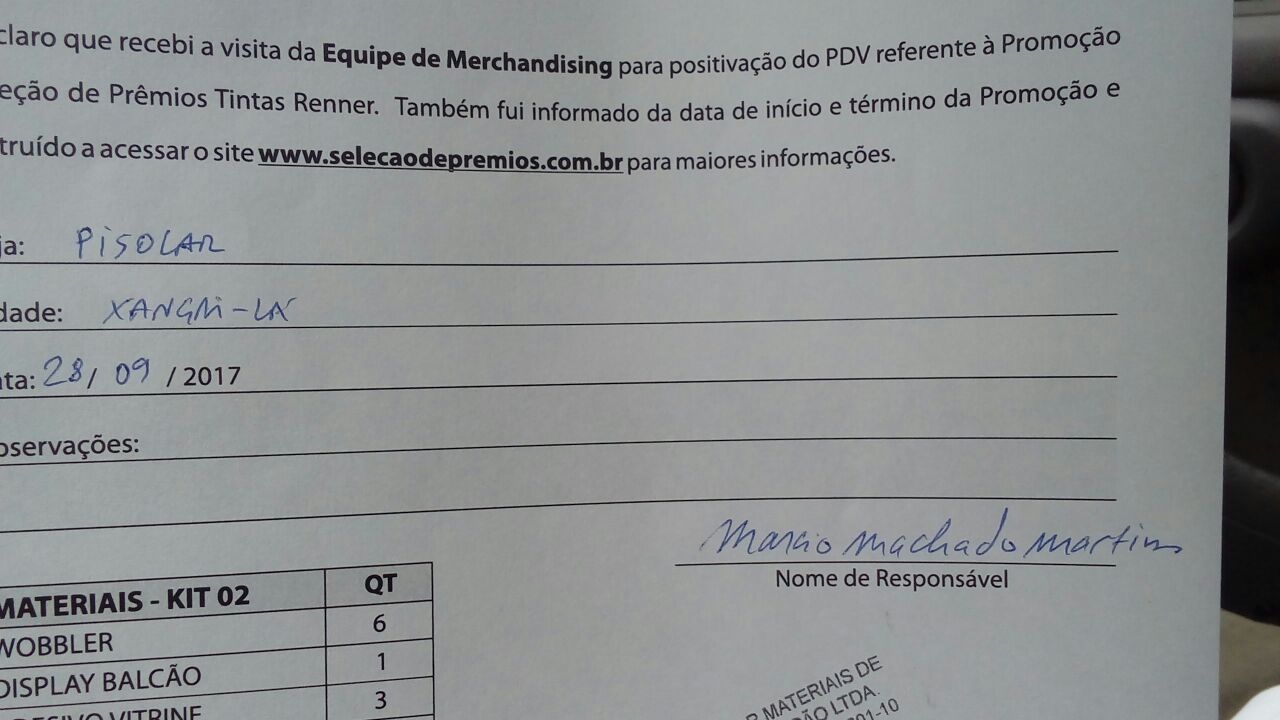 claro que recebi a visita da Equipe de Merchandising para positivação do PDV referente à Promoção
eção de Prêmios Tintas Renner. Também fui informado da data de início e término da Promoção e
truído a acessar o site www.selecaodepremios.com.br para maiores informações.
ja: PISOLAR
dade: XANGRI-LÁ
ata: 28/ 09 / 2017
bservações:
Marcio Machado Martins
Nome de Responsável
MATERIAIS - KIT 02 QT
WOBBLER 6
DISPLAY BALCÃO 1
DESIVO VITRINE 3
R MATERIAIS DE
ÇÃO LTDA.
01-10